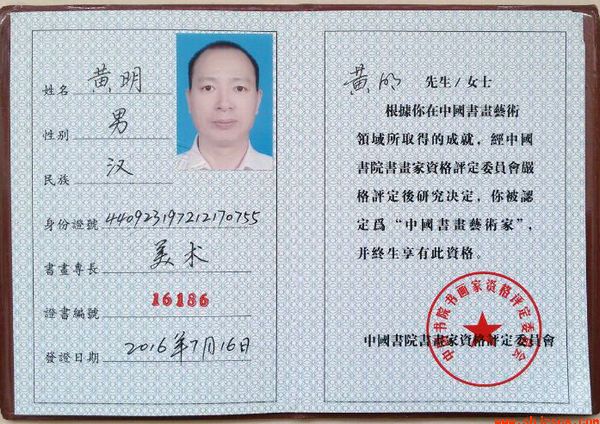 姓名 黄明
性别 男
民族 汉
身份證號 440923197212170755
書畫專長 美术
證書編號 16186
發證日期 2016年7月16日
黄明 先生/女士
根據你在中國書畫藝術
領域所取得的成就，經中國
書院書畫家資格評定委員會嚴
格評定後研究决定，你被認
定爲“中國書畫藝術家”，
并終生享有此資格。
中国书院书画家资格评定委员会
中國書院書畫家資格評定委員會